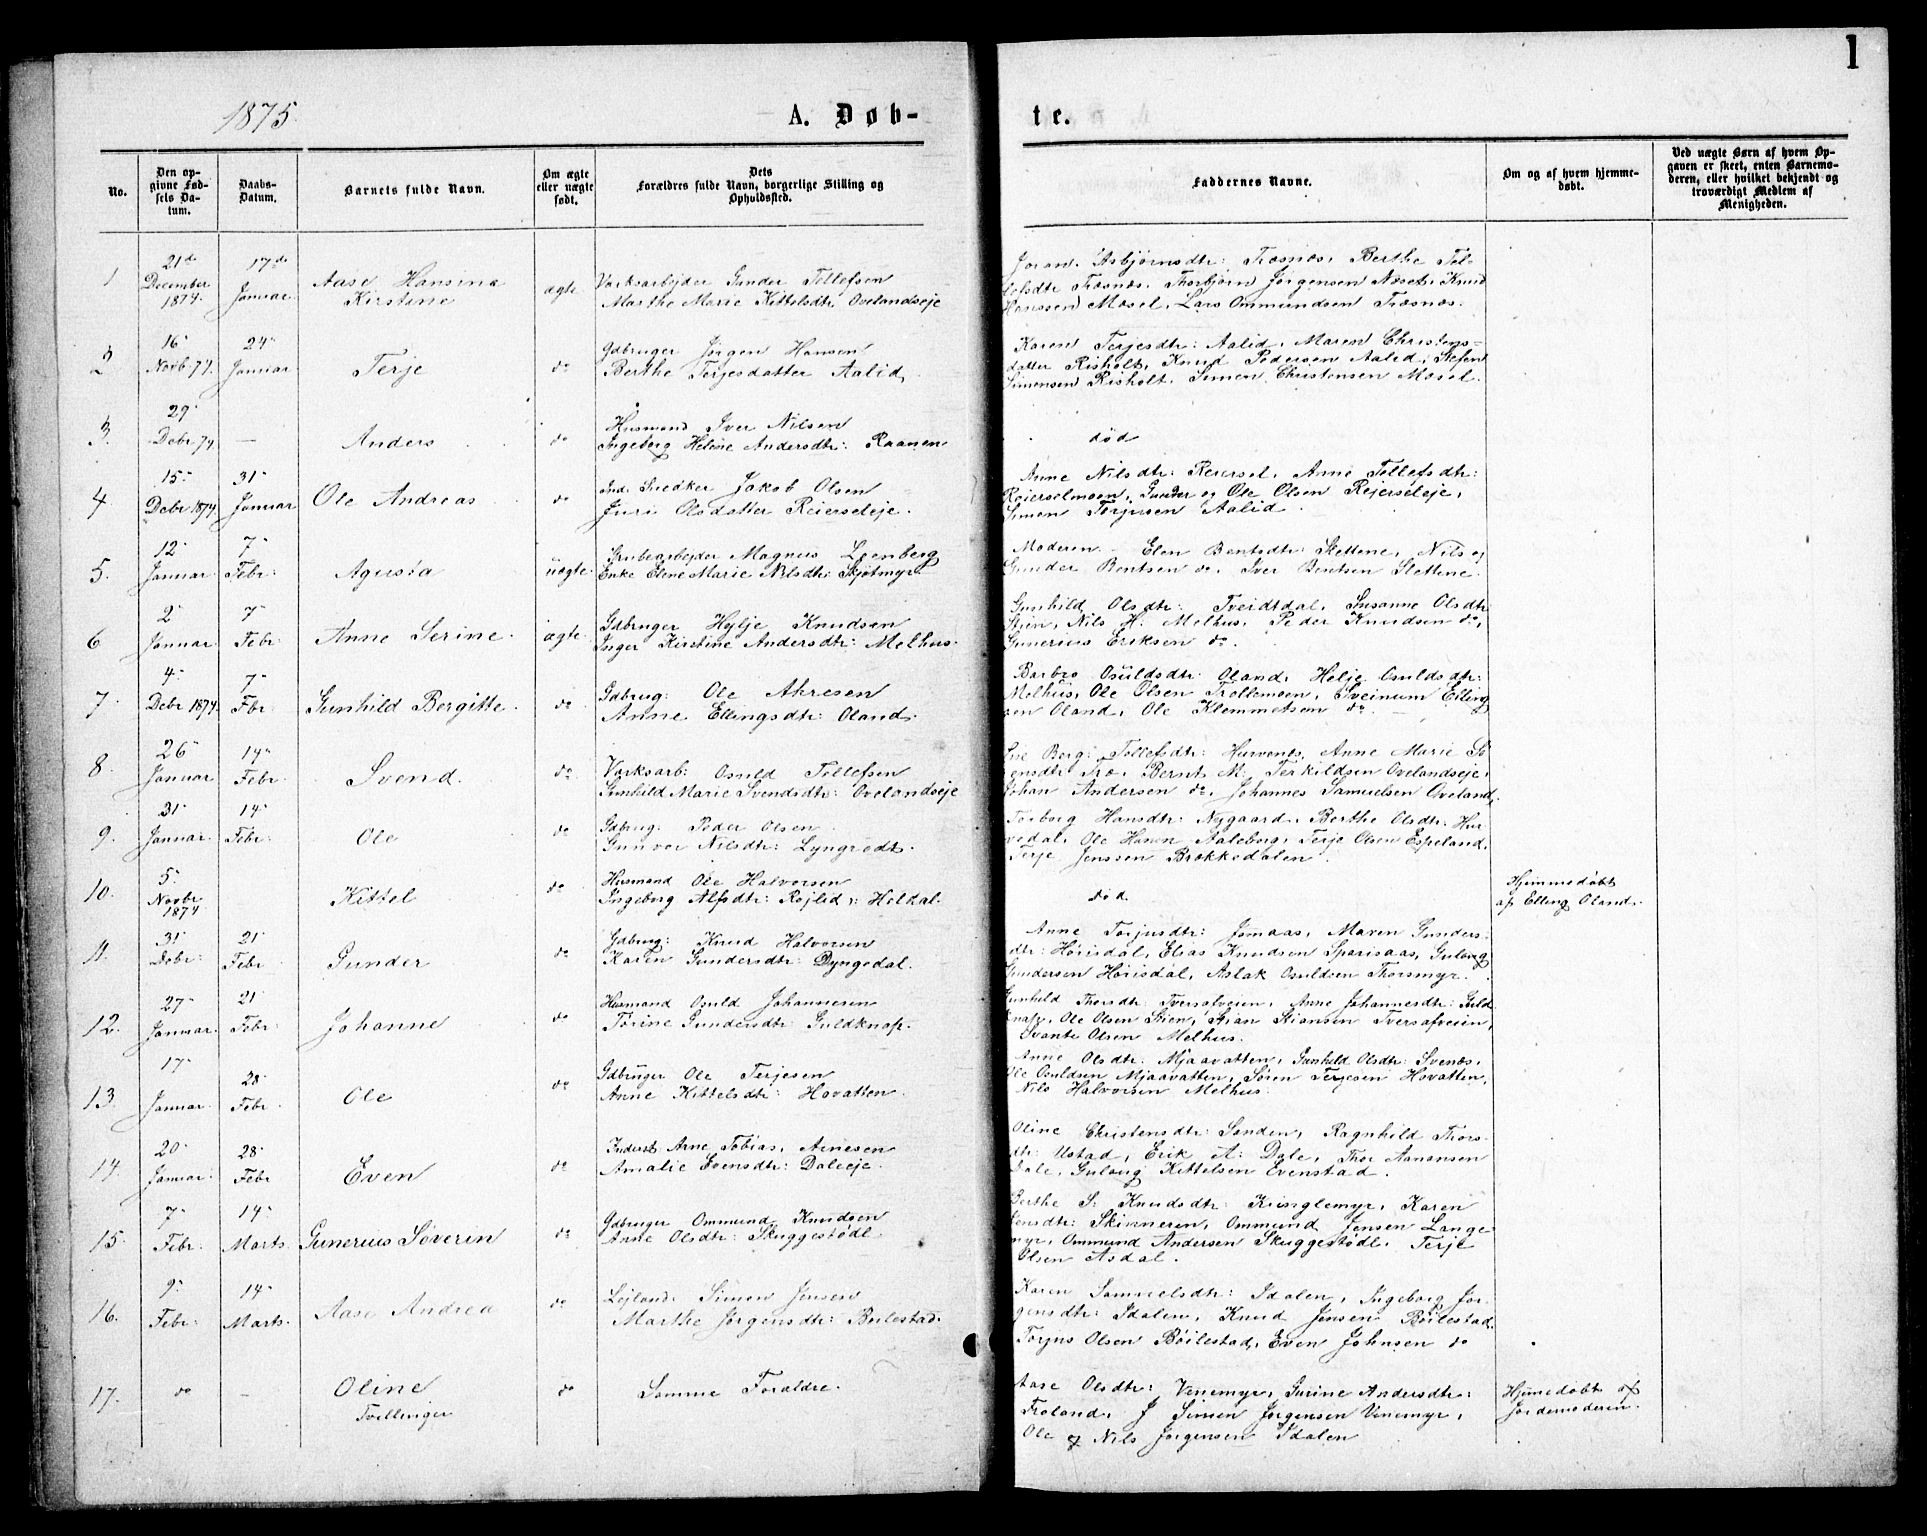 1
1875.
A. Døb-
te.
No.
Den opgivne Fødsels Datum.
Daabs-Datum.
Barnets fulde Navn.
Om ægte eller uægte født.
Dets Forældres fulde Navn, borgerlige Stilling og Opholdssted.
Faddernes Navne.
Om og af hvem hjemmedøbt.
Ved uægte Børn af hvem Opgaven er skeet, enten Barnemoderen, eller hvilket bekjendt og troværdigt Medlem af Menigheden.
1
21de December 1874.
17de Januar
Aase Hansina
Kirstine
ægte
Værksarbejder Gunder Tellefsen
Marthe Marie Kittelsdtr Ovelandseje
Joran Asbjørnsdtr: Træsnæs, Berthe Tel-
lefsdtr Træsnæs, Thorbjørn Jørgensen Næset, Knud
Hanssen Mosel, Lars Ommundsen Træsnæs.
2
16 Novb. 74.
24 Januar
Terje
do
Gdbruger Jørgen Hansen
Berthe Terjesdatter Aalid,
Karen Terjesdtr: Aalid, Maren Christens-
datter Risholt, Knud Pedersen Aalid, Stefen
Simonsen Risholt. Simon Christensen Mosel.
3.
29 Debr 74
—
Anders
do
Husmand Iver Nilsen
Ingeborg Helene Andersdtr: Raanen
død
4
15 Debr 1874
31 Januar
Ole Andreas
do
Ind. Snedker Jakob Olsen
Juri Olsdatter Reierseleje.
Anne Nilsdtr: Reiersel, Anne Tellefsdtr:
Reierselmoen, Gunder og Ole Olsen Rejerseleje,
Simon Terjusen Aalid.
5.
12 Januar
7 Febr:
Agusta
uægte
Grubearbejder Magnus Leenberg
Enke Elene Marie Nilsdtr: Skjøtmyr.
Moderen. Elen Bentsdtr: Slettene, Nils og
Gunder Bentsen do. Iver Bentsen Slettene.
6
2 Januar
7 Febr
Anne Serine.
ægte
Gdbruger Hylje Knudsen
Inger Kirstine Andersdtr: Melhus.
Gunhild Olsdtr: Tveidtdal, Susanne Olsdtr
Stien, Nils H. Melhus, Peder Knudsen do,
Gunerius Eriksen do.
7.
4 Debr 1874.
7 Fbr.
Gunhild Bergitte.
do
Gdbrug: Ole Ahresen
Anne Ellingsdtr: Oland.
Barbro Osuldsdtr: Oland, Helje Osuldsdtr:
Melhus, Ole Olsen Trollemoen, Sveinum Elling
sen Oland, Ole Klemmetsen do.
8.
26 Januar
14 Febr
Svend.
do
Værksarb: Osuld Tellefsen
Gunhild Marie Svendsdtr: Ovelandseje
Berg: Tellefsdtr: Hurvenes, Anne Marie Sø
rensdtr Træ, Bernt M: Terkildsen Ovelandseje,
Johan Andersen do, Johannes Samuelsen Oveland,
9.
31 Januar.
14 Febr:
Ole
do
Gdbrug: Peder Olsen
Gunvor Nilsdtr: Lyngrødt.
Torborg Hansdtr: Nygaard, Berthe Olsdtr: Hur-
vedal, Ole Hansen Aaleborg, Terje Olsen Espeland,
Terje Jenssen Brækkedalen.
10.
5. Novbr 1874
Kittel
do
Husmand Ole Halvorsen
Ingeborg Alfsdtr: Røjlid i Heldal.
død.
Hjemmedøbt
af Elling Oland.
11.
31 Debr:
21 Febr
Gunder
do
Gdbrug: Knud Halvorsen
Karen Gundersdtr: Dyngedal.
Anne Torjusdtr: Jomaas, Maren Gunders-
dtr: Hørisdal, Elias Knudsen Sparsaas, Gulloug
Gundersen Hørisdal, Aslak Osuldsen Thorsmyr.
12.
27 Januar.
21 Febr:
Johanne
do
Husmand Osuld Johannesen
Torine Gundersdtr: Guldknap.
Gunhild Thorsdtr: Tversafveien, Anne Johannesdtr: Guld
knap, Ole Olsen Stien, Stian Stiansen Tversafveien,
Svante Olsen Melhus.
13.
17 Januar.
28 Febr.
Ole
do
Gdbruger Ole Terjesen
Anne Kittelsdtr: Hovatten.
Anne Olsdtr: Mjaavatten, Gunhild Olsdtr: Svenæs,
Ole Osuldsen Mjaavatten, Søren Terjesen Hovatten,
Nils Halvorsen Melhus.
14.
20 Januar:
28 Febr
Even
do
Inderst Arne Tobias, Arnesen
Amalie Evensdtr: Daleeje.
Oline Christensdtr: Sanden, Ragnhild Thors-
dtr: Ustad, Erik A: Dale, Thor Aanonsen
Dale, Guloug Kittelsen Evenstad.
15.
7 Febr.
14 Marts.
Gunerius Søverin
do
Gdbruger Ommund Knudsen
Anne Olsdtr: Skuggestødl.
Berthe S: Knudsdtr: Kringlemyr, Karen
Jensdtr: Skivneren, Ommund Jensen Lange
myr, Ommund Andersen Skuggestødl. Terje
Olsen Asdal.
16.
9 Febr:
14 Marts.
Aase Andrea
do
Lejland: Simon Jensen
Marthe Jørgensdtr: Beilestad.
Karen Samuelsdtr: Idalen, Ingeborg Jør-
gensdtr: Idalen, Knud Jensen Bøilestad.
Torjus Olsen Bøilestad, Even Johnsen do
17.
do
—
Oline
Tvillinger
do
Samme Forældre.
Aase Olsdtr: Vinemyr, Gurine Andersdtr:
Froland, J Simon Jørgensen Vinemyr,
Ole og Nils Jørgensen Idalen
Hjemedøbt af
Jordemoderen.